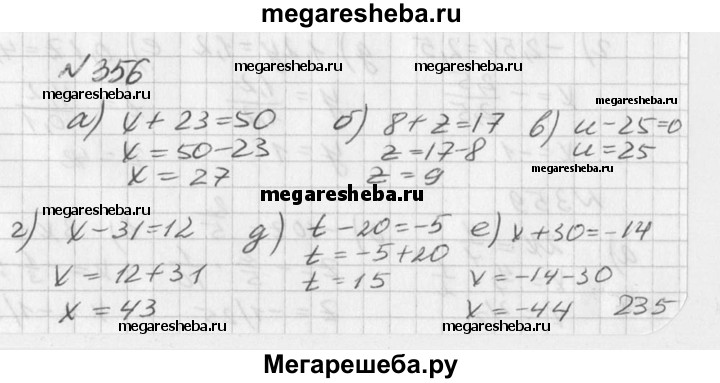 megaresheba.ru
№ 356
megaresheba.ru megaresheba.ru
megaresheba.ru megaresheba.ru
а) x + 23 = 50 б) 8 + z = 17 в) u - 25 = 0
x = 50 - 23 z = 17 - 8 u = 25
x = 27 z = 9
megaresheba.ru megaresheba.ru
megaresheba.ru
megaresheba.ru
г) x - 31 = 12 д) t - 20 = -5 е) x + 30 = -14
t = -5 + 20
megaresheba.ru megaresheba.ru
x = 12 + 31 t = 15 x = -14 - 30
x = 43 x = -44 235
megaresheba.ru megaresheba.ru
Мегарешеба.ру